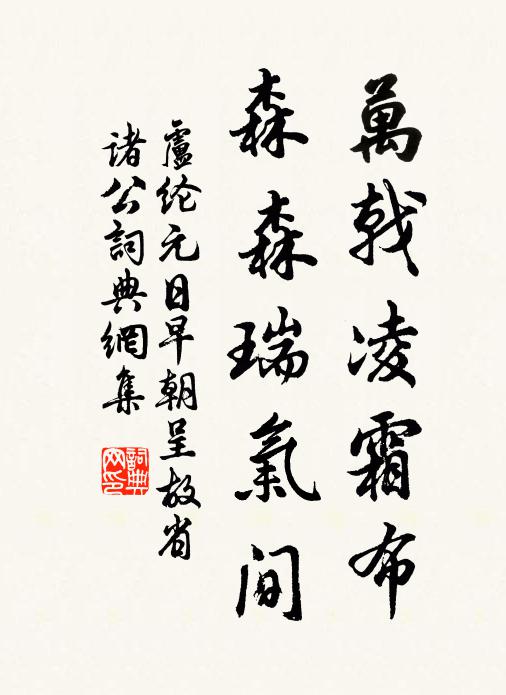 萬戟凌霜布
森森瑞氣间
盧纶元日早朝呈故省
諸公詞典網集
詞典网印